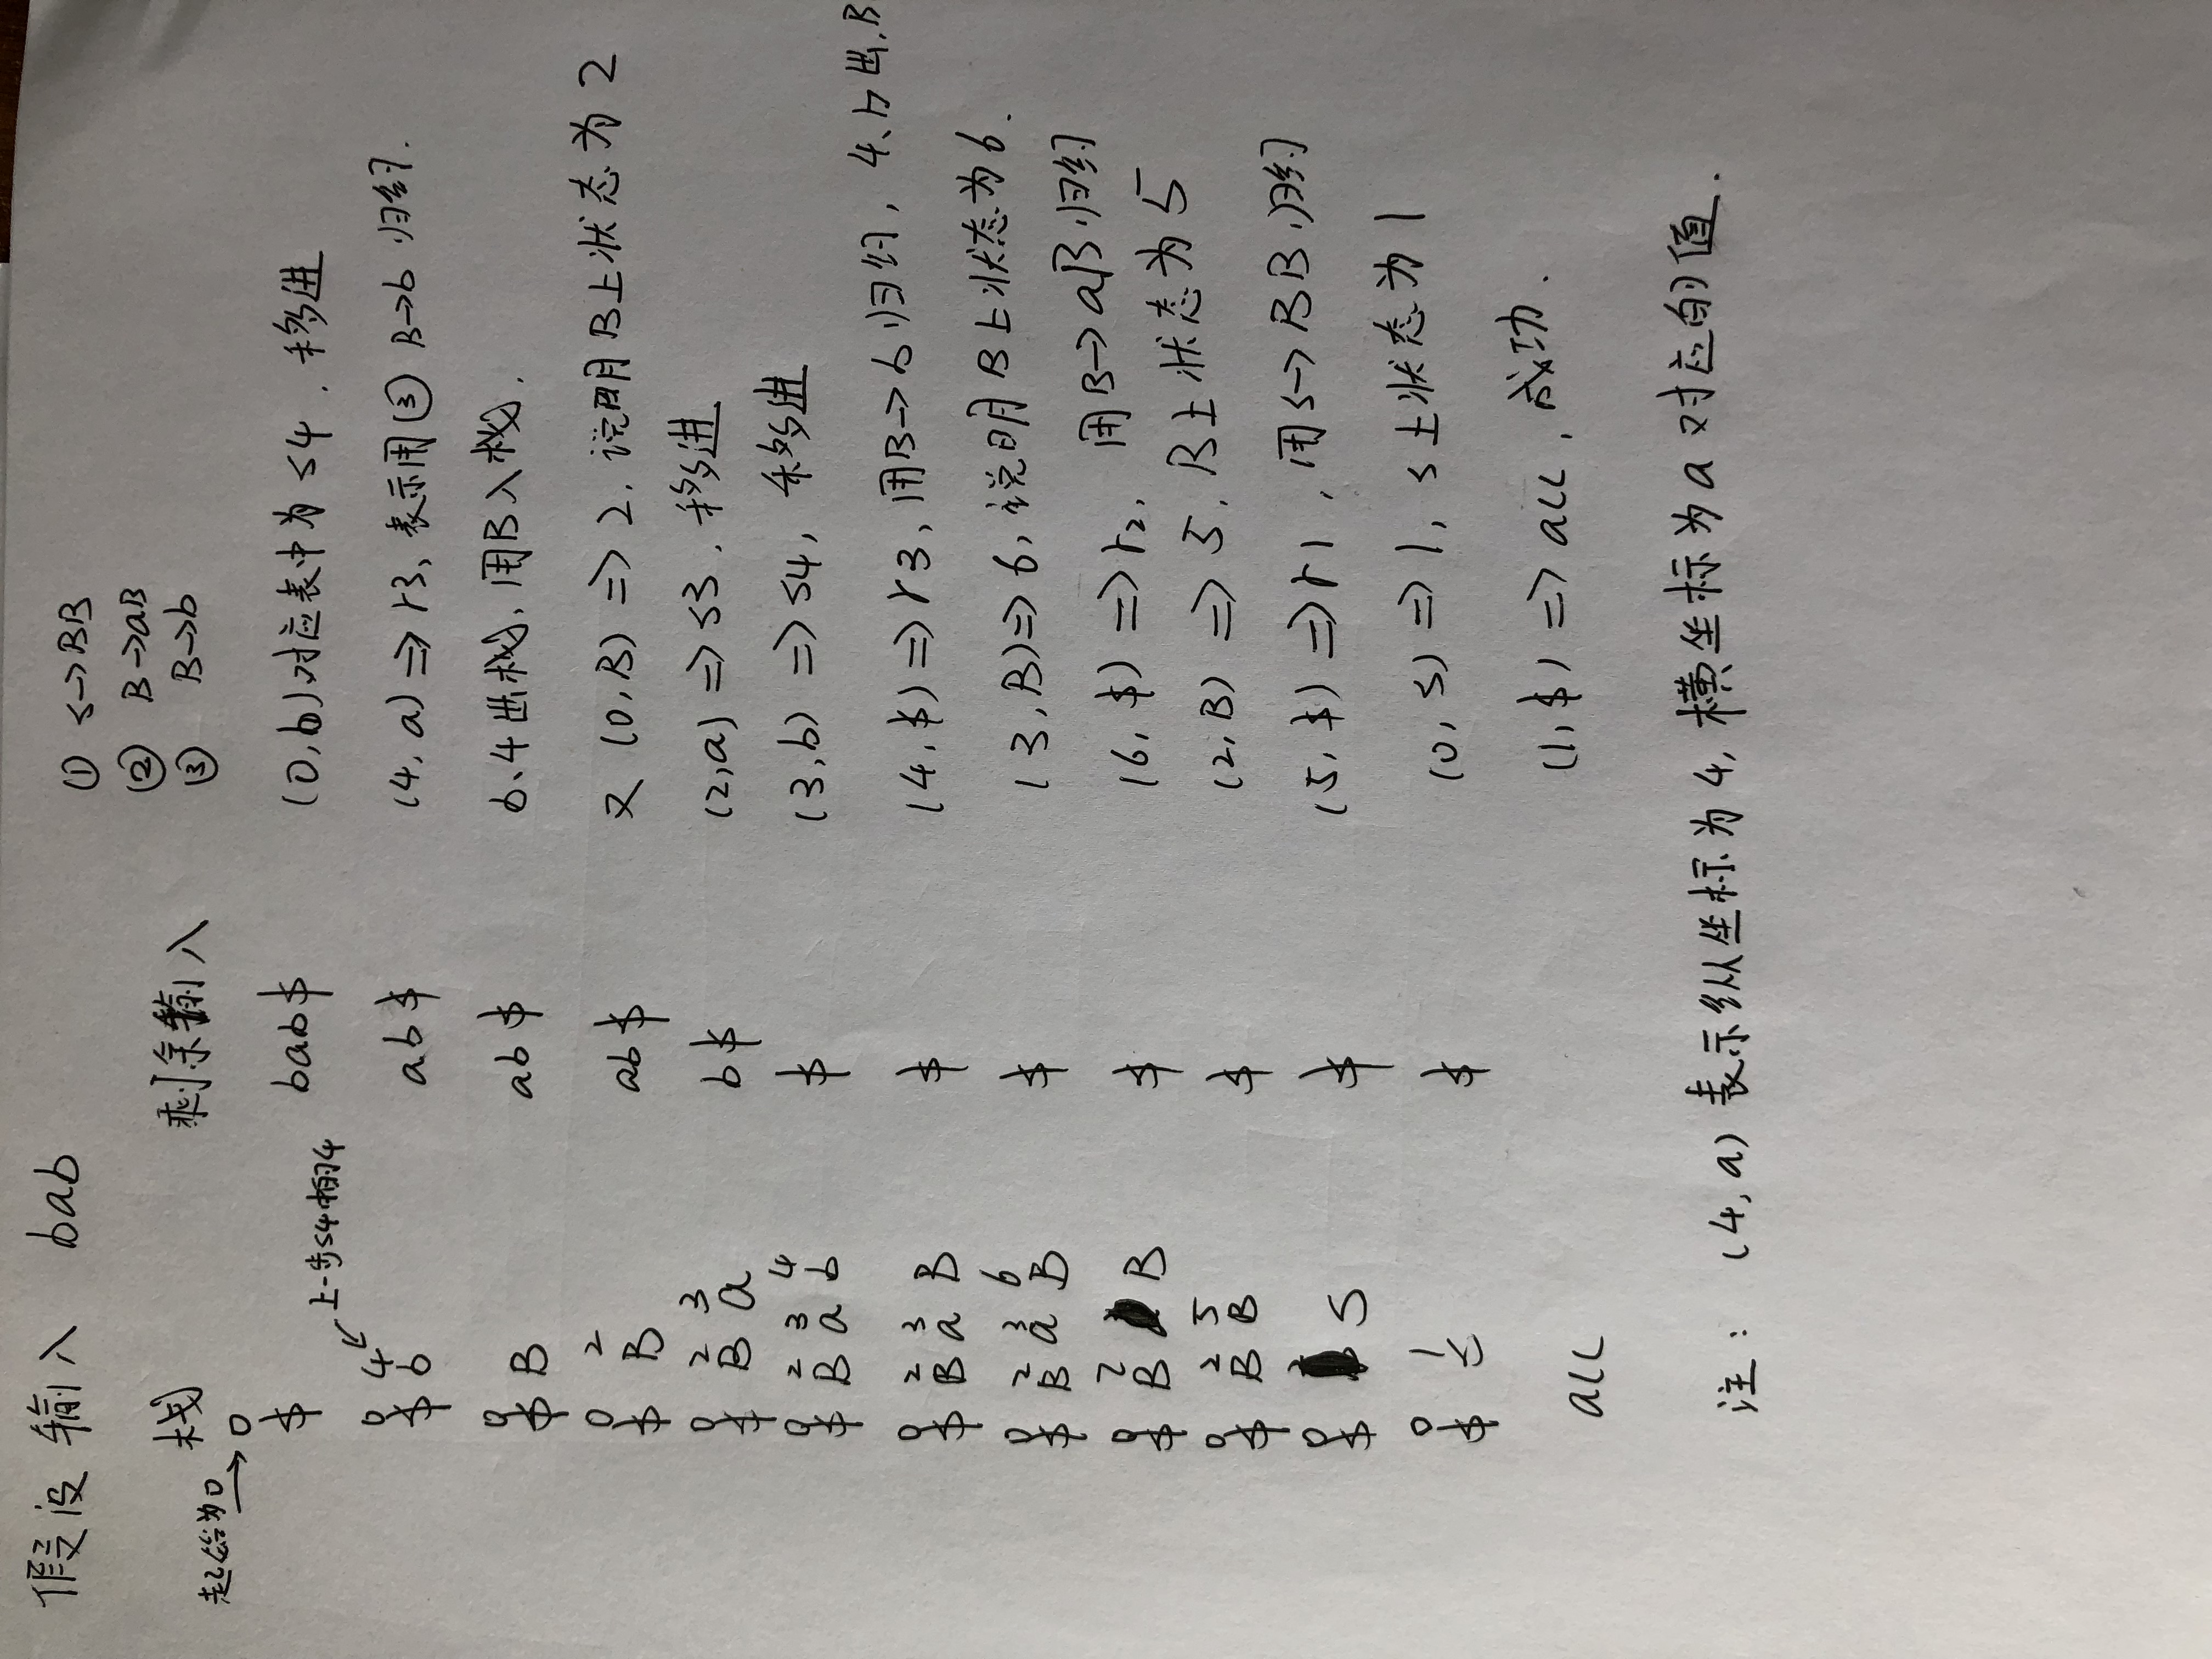 假设输入 bab
① S→BB
② B→aB
③ B→b
栈 剩余输入
起始为0→
0
$ bab$ (0,b)对应表中为S4,移进
上一步S4中的4
0 4
$ b ab$ (4,a)⇒r3,表示用③B→b归约.
0
$ B ab$ b、4出栈,用B入栈.
0 2
$ B ab$ 又(0,B)⇒2,说明B上状态为2
0 2 3
$ B a b$ (2,a)⇒S3,移进
0 2 3 4
$ B a b $ (3,b)⇒S4,移进
0 2 3
$ B a B $ (4,$)⇒r3,用B→b归约,4、b出,B
0 2 3 6
$ B a B $ (3,B)⇒6,说明B上状态为6.
0 2
$ B B $ (6,$)⇒r2,用B→aB归约
0 2 5
$ B B $ (2,B)⇒5,B上状态为5
0
$ S $ (5,$)⇒r1,用S→BB归约
0 1
$ S $ (0,S)⇒1,S上状态为1
acc (1,$)⇒acc,成功.
注:(4,a)表示纵坐标为4,横坐标为a对应的值.